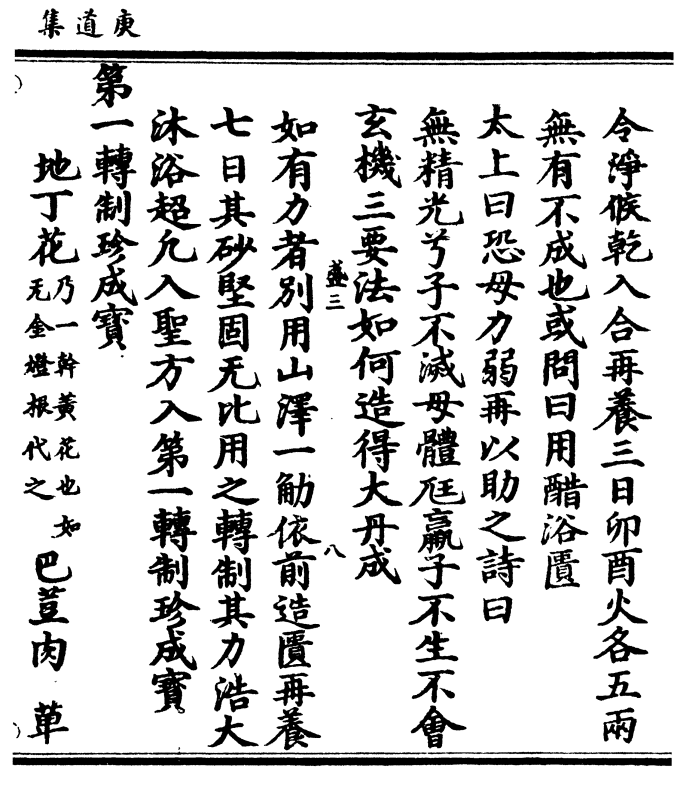 庚道集
令淨候乾入合再養三日卯酉火各五兩
無有不成也或問曰用醋浴匱
太上曰恐母力弱再以助之詩曰
無精光兮子不滅母體尫羸子不生不會
玄機三要法如何造得大丹成
盡三
八
如有力者別用山澤一觔依前造匱再養
七日其砂堅固无比用之轉制其力浩大
沐浴超凡入聖方入第一轉制珍成寶
第一轉制珍成寶
地丁花乃一幹黃花也如无金燈根代之巴荳肉 草